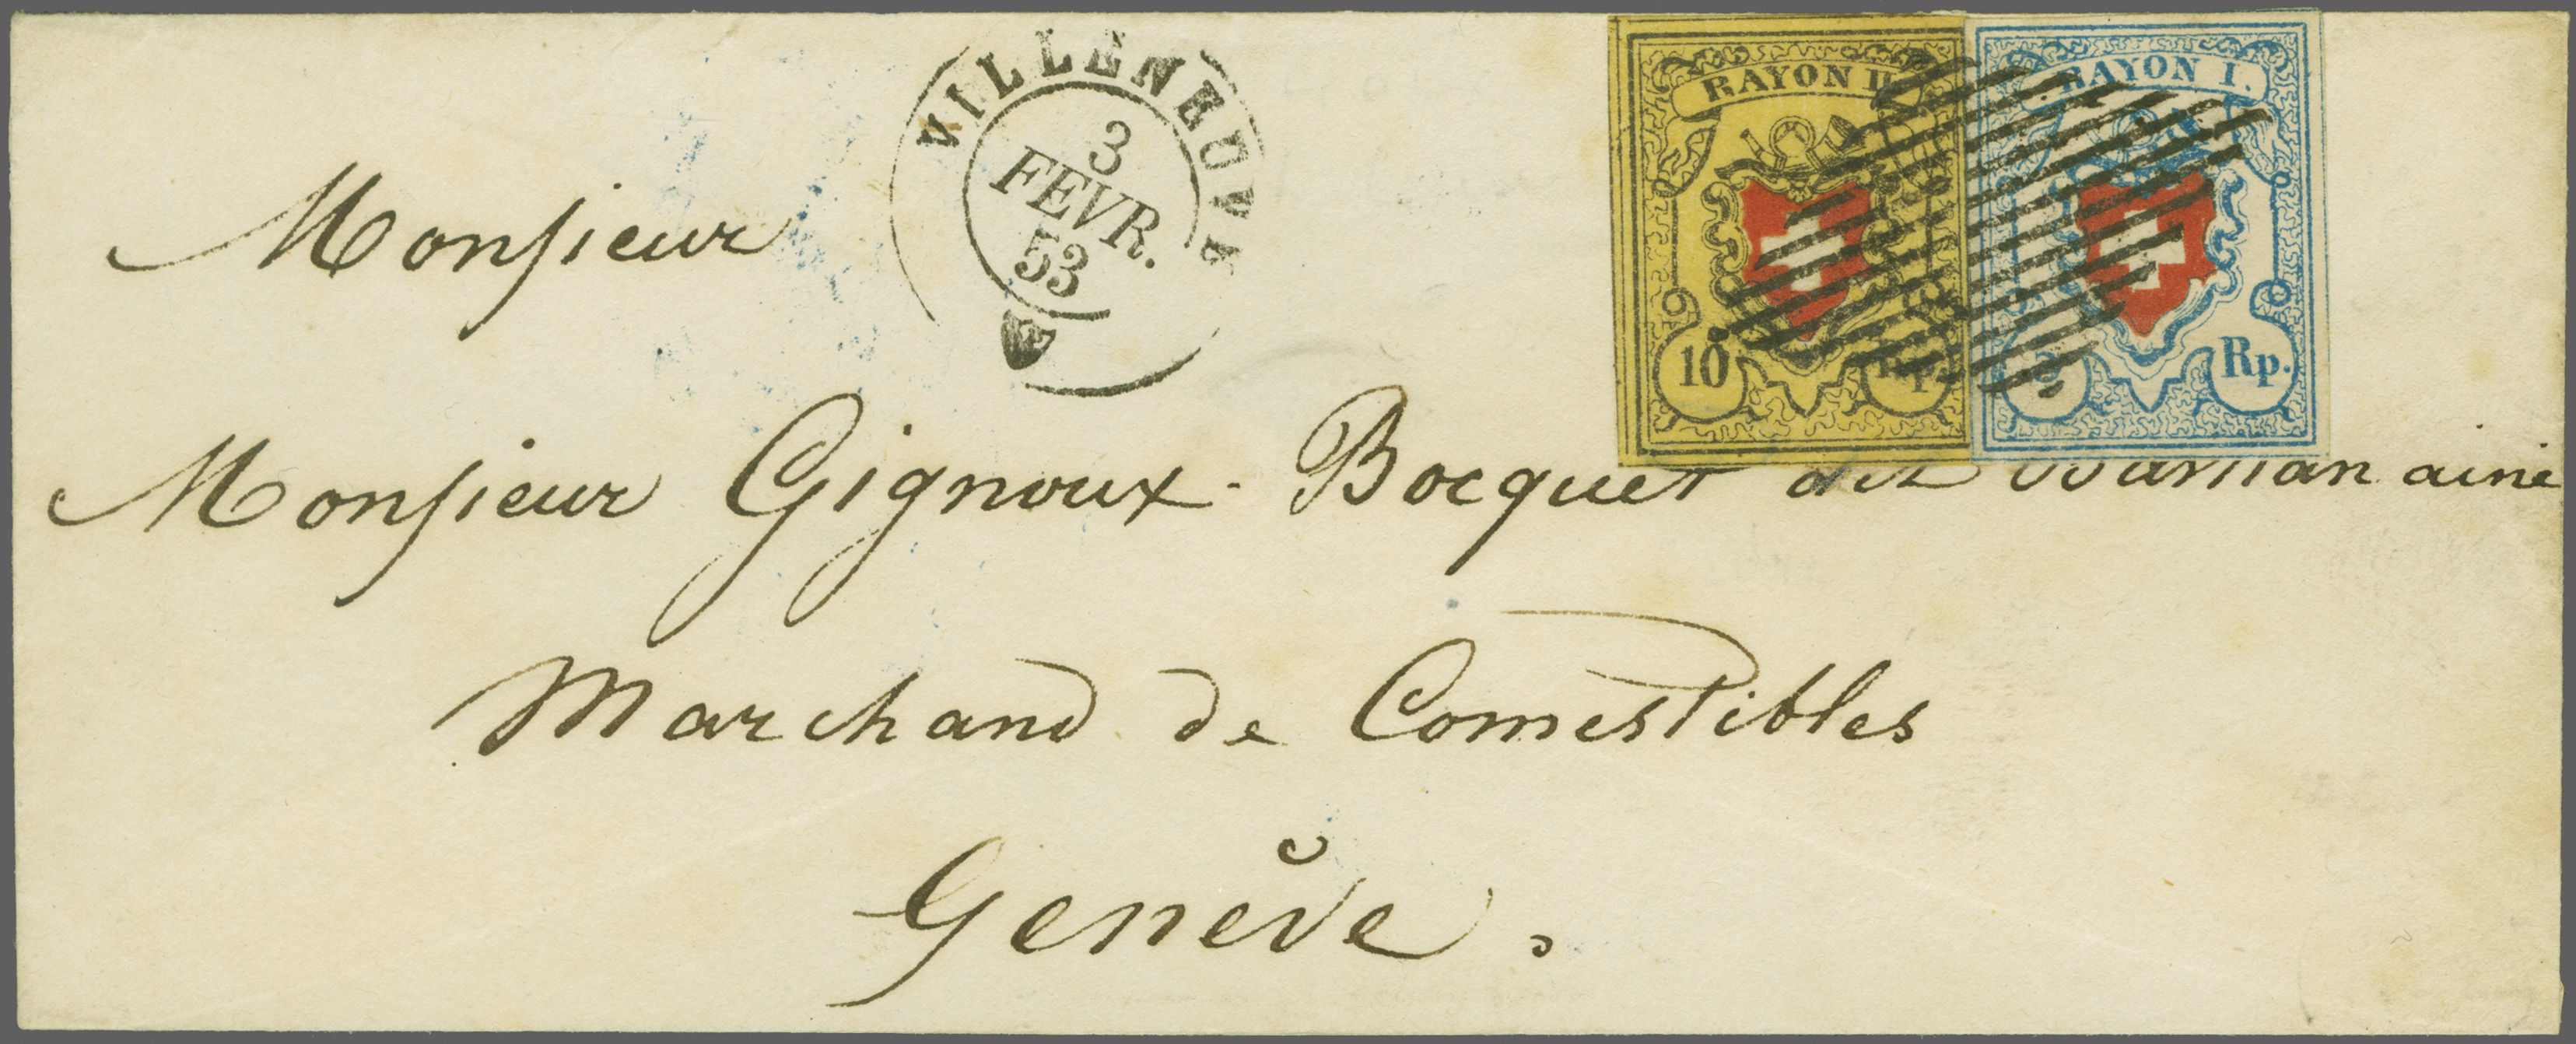 VILLENEUVE
3
FEVR.
53
RAYON II.
10 Rp.
RAYON I.
5 Rp.
Monsieur
Monsieur Gignoux-Bocquet dit ainé
Marchand de Comestibles
Genève.